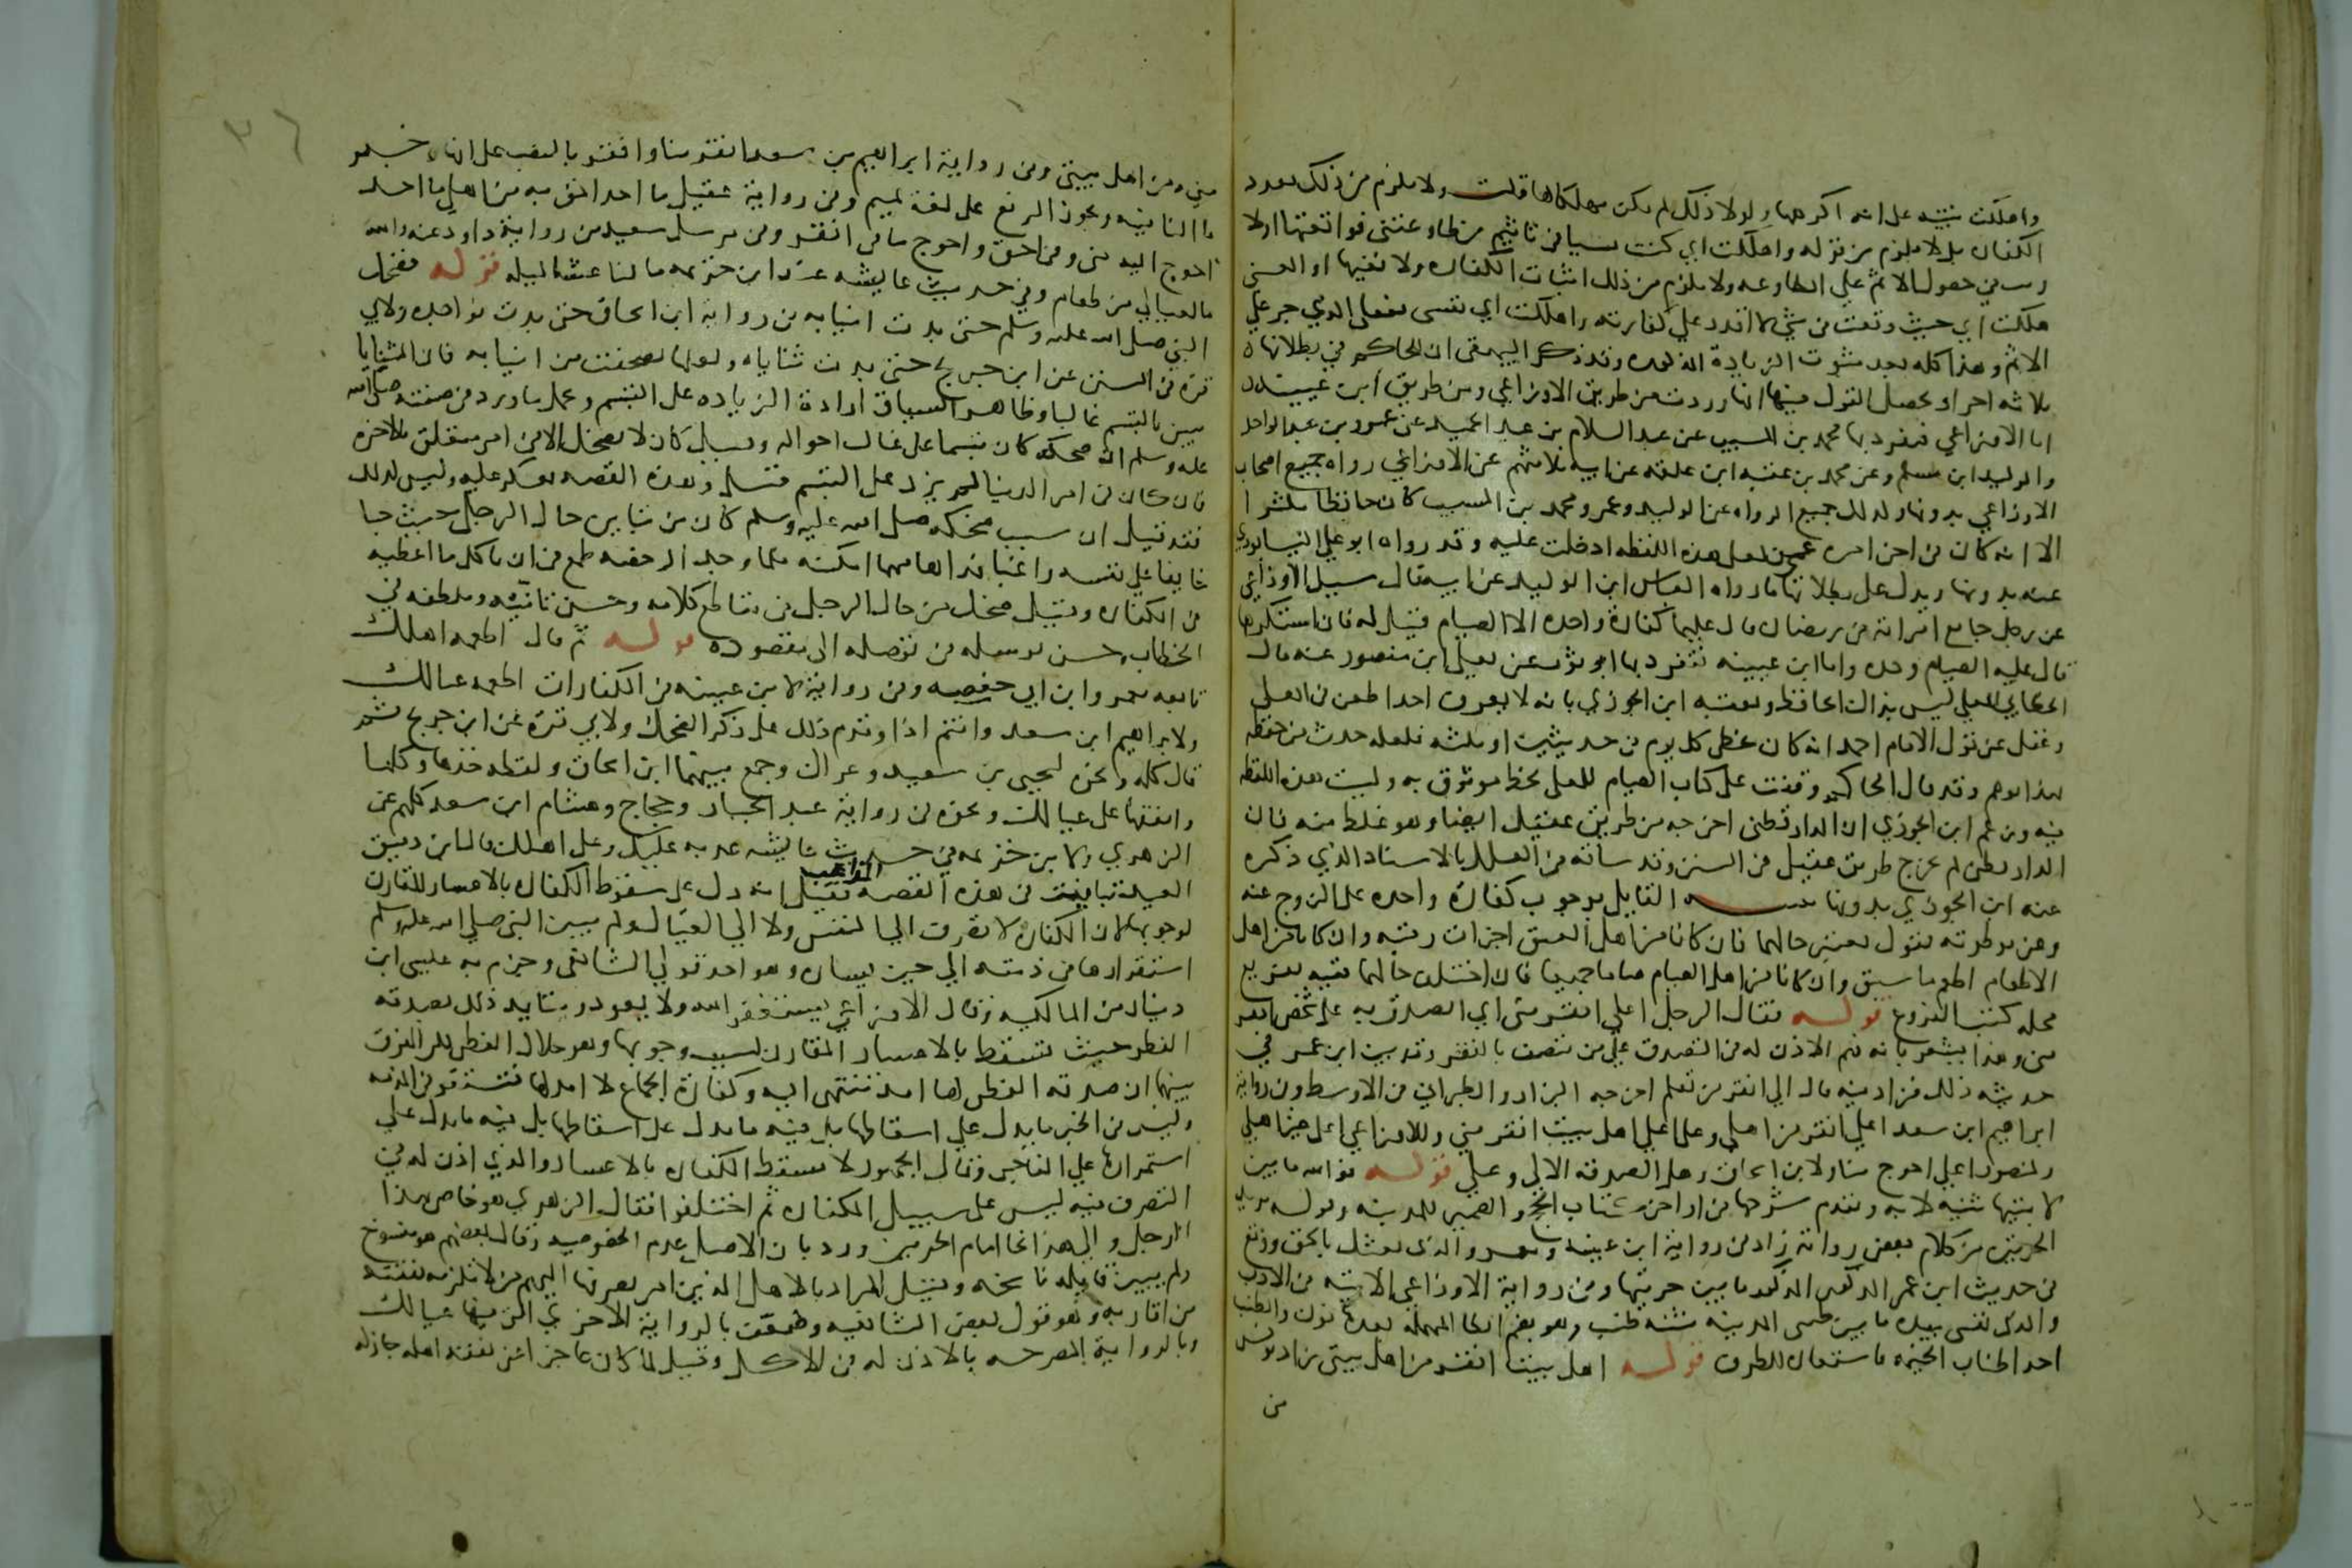 واهلكت بنيته على انه اكرهها ولولا ذلك لم يكن مهلكا لها قلت ولا يلزم من ذلك تعدد
الكفاره بل لا يلزم من قوله واهلكت اي كنت سببا في تاثيم من طاوعتني فواقعتها اذ لا
ريب في حصول الاثم على المطاوعه ولا يلزم من ذلك اثبات الكفاره ولا نفيها او المعنى
هلكت اي حيث وقعت في شي لا اقدر على كفارته واهلكت اي نفسي بفعلي الذي جر علي
الاثم وهذا كله بعد ثبوت الزيادة المذكوره وقد ذكر البيهقي ان للحاكم في بطلانها
ثلاثه اجزاء ومحصل القول فيها انها وردت من طريق الاوزاعي ومن طريق ابن عيينه
اما الاوزاعي فتفرد بها محمد بن المسيب عن عبد السلام بن عبد الحميد عن عمر بن عبد الواحد
والوليد ابن مسلم وعن محمد بن عقبه ابن علقمه عن ابيه ثلاثتهم عن الاوزاعي رواه جميع اصحاب
الاوزاعي بدونها وكذلك جميع الرواه عن الوليد وعمر ومحمد بن المسيب كان حافظا مكثرا
الا انه كان في اخر امره عمي فلعل هذه اللفظه ادخلت عليه وقد رواه ابو علي النيسابوري
عنه بدونها ويدل على بطلانها ما رواه العباس ابن الوليد عن ابيه قال سئل الاوزاعي
عن رجل جامع امراته في رمضان قال عليهما كفارة واحده الا الصيام قيل له فان استكرهها
قال عليه الصيام وحده واما ابن عيينه فتفرد بها ابو ثور عن معلى ابن منصور عنه قال
الخطابي المعلى ليس بذاك الحافظ وتعقبه ابن الجوزي بانه لا يعرف احدا طعن في المعلى
وغفل عن قول الامام احمد انه كان يخطي كل يوم في حديثين او ثلثه فلعله حدث من حفظه
بهذا فوهم وقد قال الحاكم وقفت على كتاب الصيام للمعلى بخط موثوق به وليست هذه اللفظه
فيه وزعم ابن الجوزي ان الدارقطني اخرجه من طريق عقيل ايضا وهو غلط منه فان
الدارقطني لم يخرج طريق عقيل في السنن وقد ساقه في العلل بالاسناد الذي ذكره
عنه ابن الجوزي بدونها تنبيه القايل بوجوب كفارة واحده على الزوج عنه
وعن موطوته يقول يعتبر حالهما فان كانا من اهل العتق اجزات رقبه وان كانا من اهل
الاطعام اطعم ما سبق وان كانا من اهل الصيام صاما جميعا فان اختلف حالهما ففيه تفريع
محله كتب الفروع قوله فقال الرجل اعلى افقر مني اي اتصدق به على شخص افقر
مني وهذا يشعر بانه فهم الاذن له في التصدق على من يتصف بالفقر وقد بين ابن عمر في
حديثه ذلك فزاد فيه قال الى افقر من تعلم اخرجه البزار والطبراني في الاوسط وفي رواية
ابراهيم ابن سعد اعلى افقر من اهلي وعلى اهل بيت افقر مني وللاوزاعي اعلى غير اهلي
ولمنصور اعلى احوج منا ولابن اسحاق وهل الصدقه الا لي وعلي قوله فوالله ما بين
لابتيها تثنيه لابه وتقدم شرحها في اواخر كتاب الحج والضمير للمدينه وقوله يريد
الحرتين من كلام بعض رواته زاد في رواية ابن عيينه ومعمر والذي بعثك بالحق ووقع
في حديث ابن عمر المذكور ما بين حرتيها وفي رواية الاوزاعي الاتيه في الادب
والذي نفسي بيده ما بين طنبي المدينه تثنيه طنب وهو بضم الطا المهمله بعدها نون والطنب
احد اطناب الخيمه فاستعاره للطرف قوله اهل بيت افقر من اهل بيتي زاد يونس
من
مني ومن اهل بيتي وفي رواية ابراهيم بن سعد افقر منا وافقر بالنصب على انها خبر
ما النافيه ويجوز الرفع على لغة تميم وفي رواية عقيل ما احد احق به من اهلي ما احد
احوج اليه مني وفي احق واحوج ما في افقر وفي مرسل سعيد من رواية داود عنه والله
ما لعيالي من طعام وفي حديث عايشه عند ابن خزيمه ما لنا عشا ليله قوله فضحك
النبي صلى الله عليه وسلم حتى بدت انيابه في رواية ابن اسحاق حتى بدت نواجذه ولابي
قره في السنن عن ابن جريج حتى بدت ثناياه ولعلها تصحفت من انيابه فان الثنايا
تبين بالتبسم غالبا وظاهر السياق ارادة الزياده على التبسم ويحمل ما ورد في صفته صلى الله
عليه وسلم ان ضحكه كان تبسما على غالب احواله وقيل كان لا يضحك الا في امر متعلق بالاخره
فان كان في امر الدنيا لم يزد على التبسم قيل وهذه القصه تعكر عليه وليس كذلك
فقد قيل ان سبب ضحكه صلى الله عليه وسلم كان من تباين حال الرجل حيث جا
خايفا على نفسه راغبا في فداها مهما امكنه فلما وجد الرخصه طمع في ان ياكل ما اعطيه
في الكفاره وقيل ضحك من حال الرجل في مقاطع كلامه وحسن تاتيه وتلطفه في
الخطاب وحسن توسله في توصله الى مقصوده قوله ثم قال اطعمه اهلك
تابعه معمر وابن ابي حفصه وفي رواية لابن عيينه في الكفارات اطعمه عيالك
ولابراهيم ابن سعد فانتم اذا وتقدم ذلك على ذكر الضحك ولابي قره عن ابن جريج ثم
قال كله ونحوه ليحيى بن سعيد وعراك وجمع بينهما ابن اسحاق ولفظه خذها وكلها
وانفقها على عيالك ونحوه في رواية عبد الجبار وحجاج وهشام ابن سعد كلهم عن
الزهري ولابن خزيمه في حديث عايشه عد به عليك وعلى اهلك قال ابن دقيق
العيد تباينت في هذه القصه المذاهب فقيل انه دل على سقوط الكفاره بالاعسار المقارن
لوجوبها لان الكفاره لا تصرف الى النفس ولا الى العيال ولم يبين النبي صلى الله عليه وسلم
استقرارها في ذمته الى حين يساره وهو احد قولي الشافعي وجزم به عيسى ابن
دينار من المالكيه وقال الاوزاعي يستغفر الله ولا يعود ويتايد ذلك بصدقه
الفطر حيث تسقط بالاعسار المقارن لسبب وجوبها وهو هلال الفطر لكن الفرق
بينهما ان صدقه الفطر لها امد تنتهي اليه وكفارة الجماع لا امد لها فتستقر في الذمه
وليس في الخبر ما يدل على اسقاطها بل فيه ما يدل على اسقاطها بل فيه ما يدل على
استمرارها على العاجز وقال الجمهور لا تسقط الكفاره بالاعسار والذي اذن له في
التصرف فيه ليس على سبيل الكفاره ثم اختلفوا فقال الزهري هو خاص بهذا
الرجل والى هذا نحا امام الحرمين ورد بان الاصل عدم الخصوصيه وقال بعضهم هو منسوخ
ولم يبين قايله ناسخه وقيل المراد بالاهل الذين امر بصرفها اليهم من لا تلزمه نفقته
من اقاربه وهو قول بعض الشافعيه وضعف بالروايه الاخرى التي فيها عيالك
وبالروايه المصرحه بالاذن له في الاكل وقيل لما كان عاجزا عن نفقة اهله جاز له